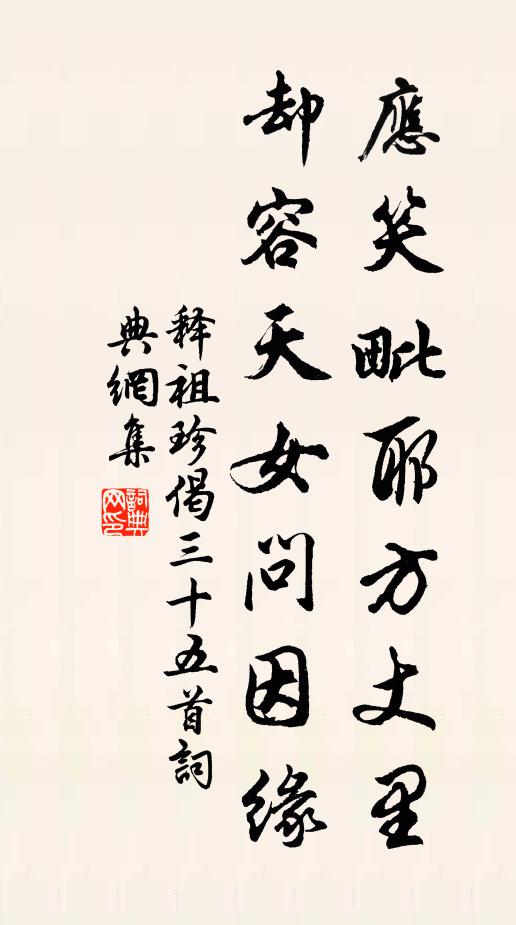 應笑毗耶方丈里
却容天女問因緣
释祖珍偈三十五首詞
典網集
詞典網印